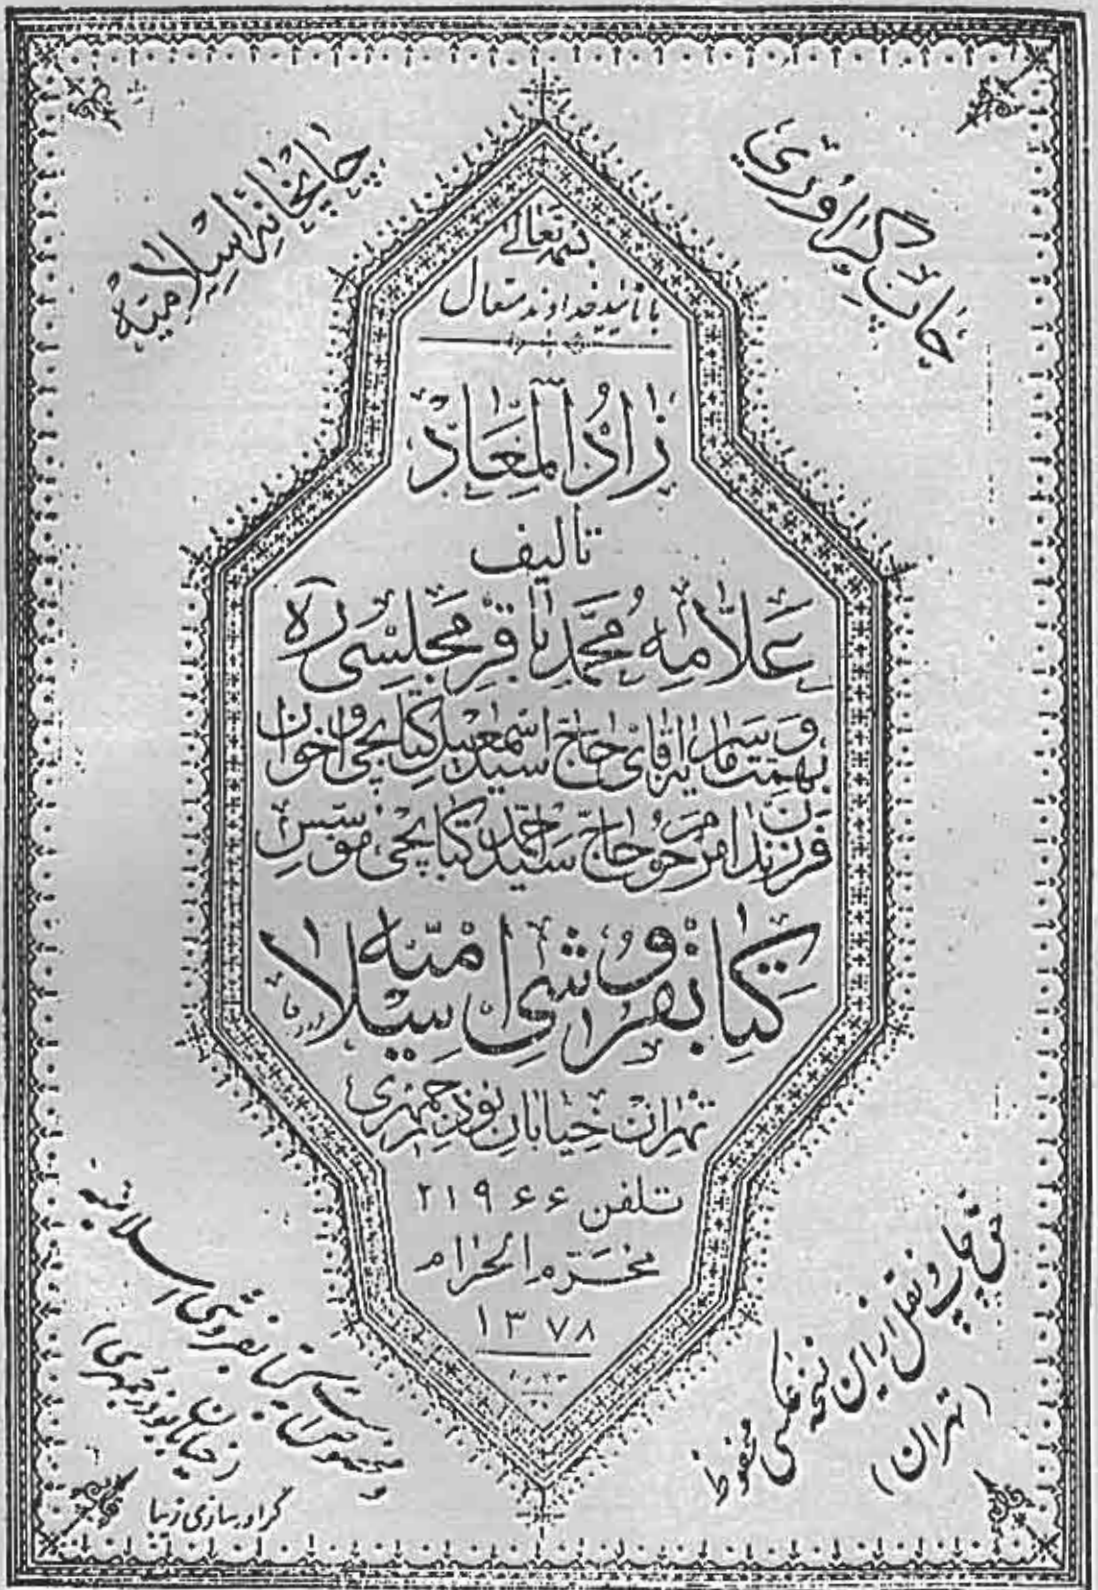 چاپ گراوری
چاپخانه اسلامیه
بسمه تعالی
با تائید خداوند متعال
زاد المعاد
تالیف
علامه محمد باقر مجلسی ره
بهمت و سرمایه آقای حاج سید اسمعیل کتابچی و اخوان
فرزندان مرحوم حاج سید احمد کتابچی مؤسس
کتابفروشی اسلامیه
تهران خیابان بوذرجمهری
تلفن ۲۱۹۶۶
محرم الحرام
۱۳۷۸
حق چاپ و نقل از این نسخه عکسی محفوظ
و مخصوص است بکتابفروشی اسلامیه
(تهران)
(خیابان بوذرجمهری)
گراورسازی زیبا